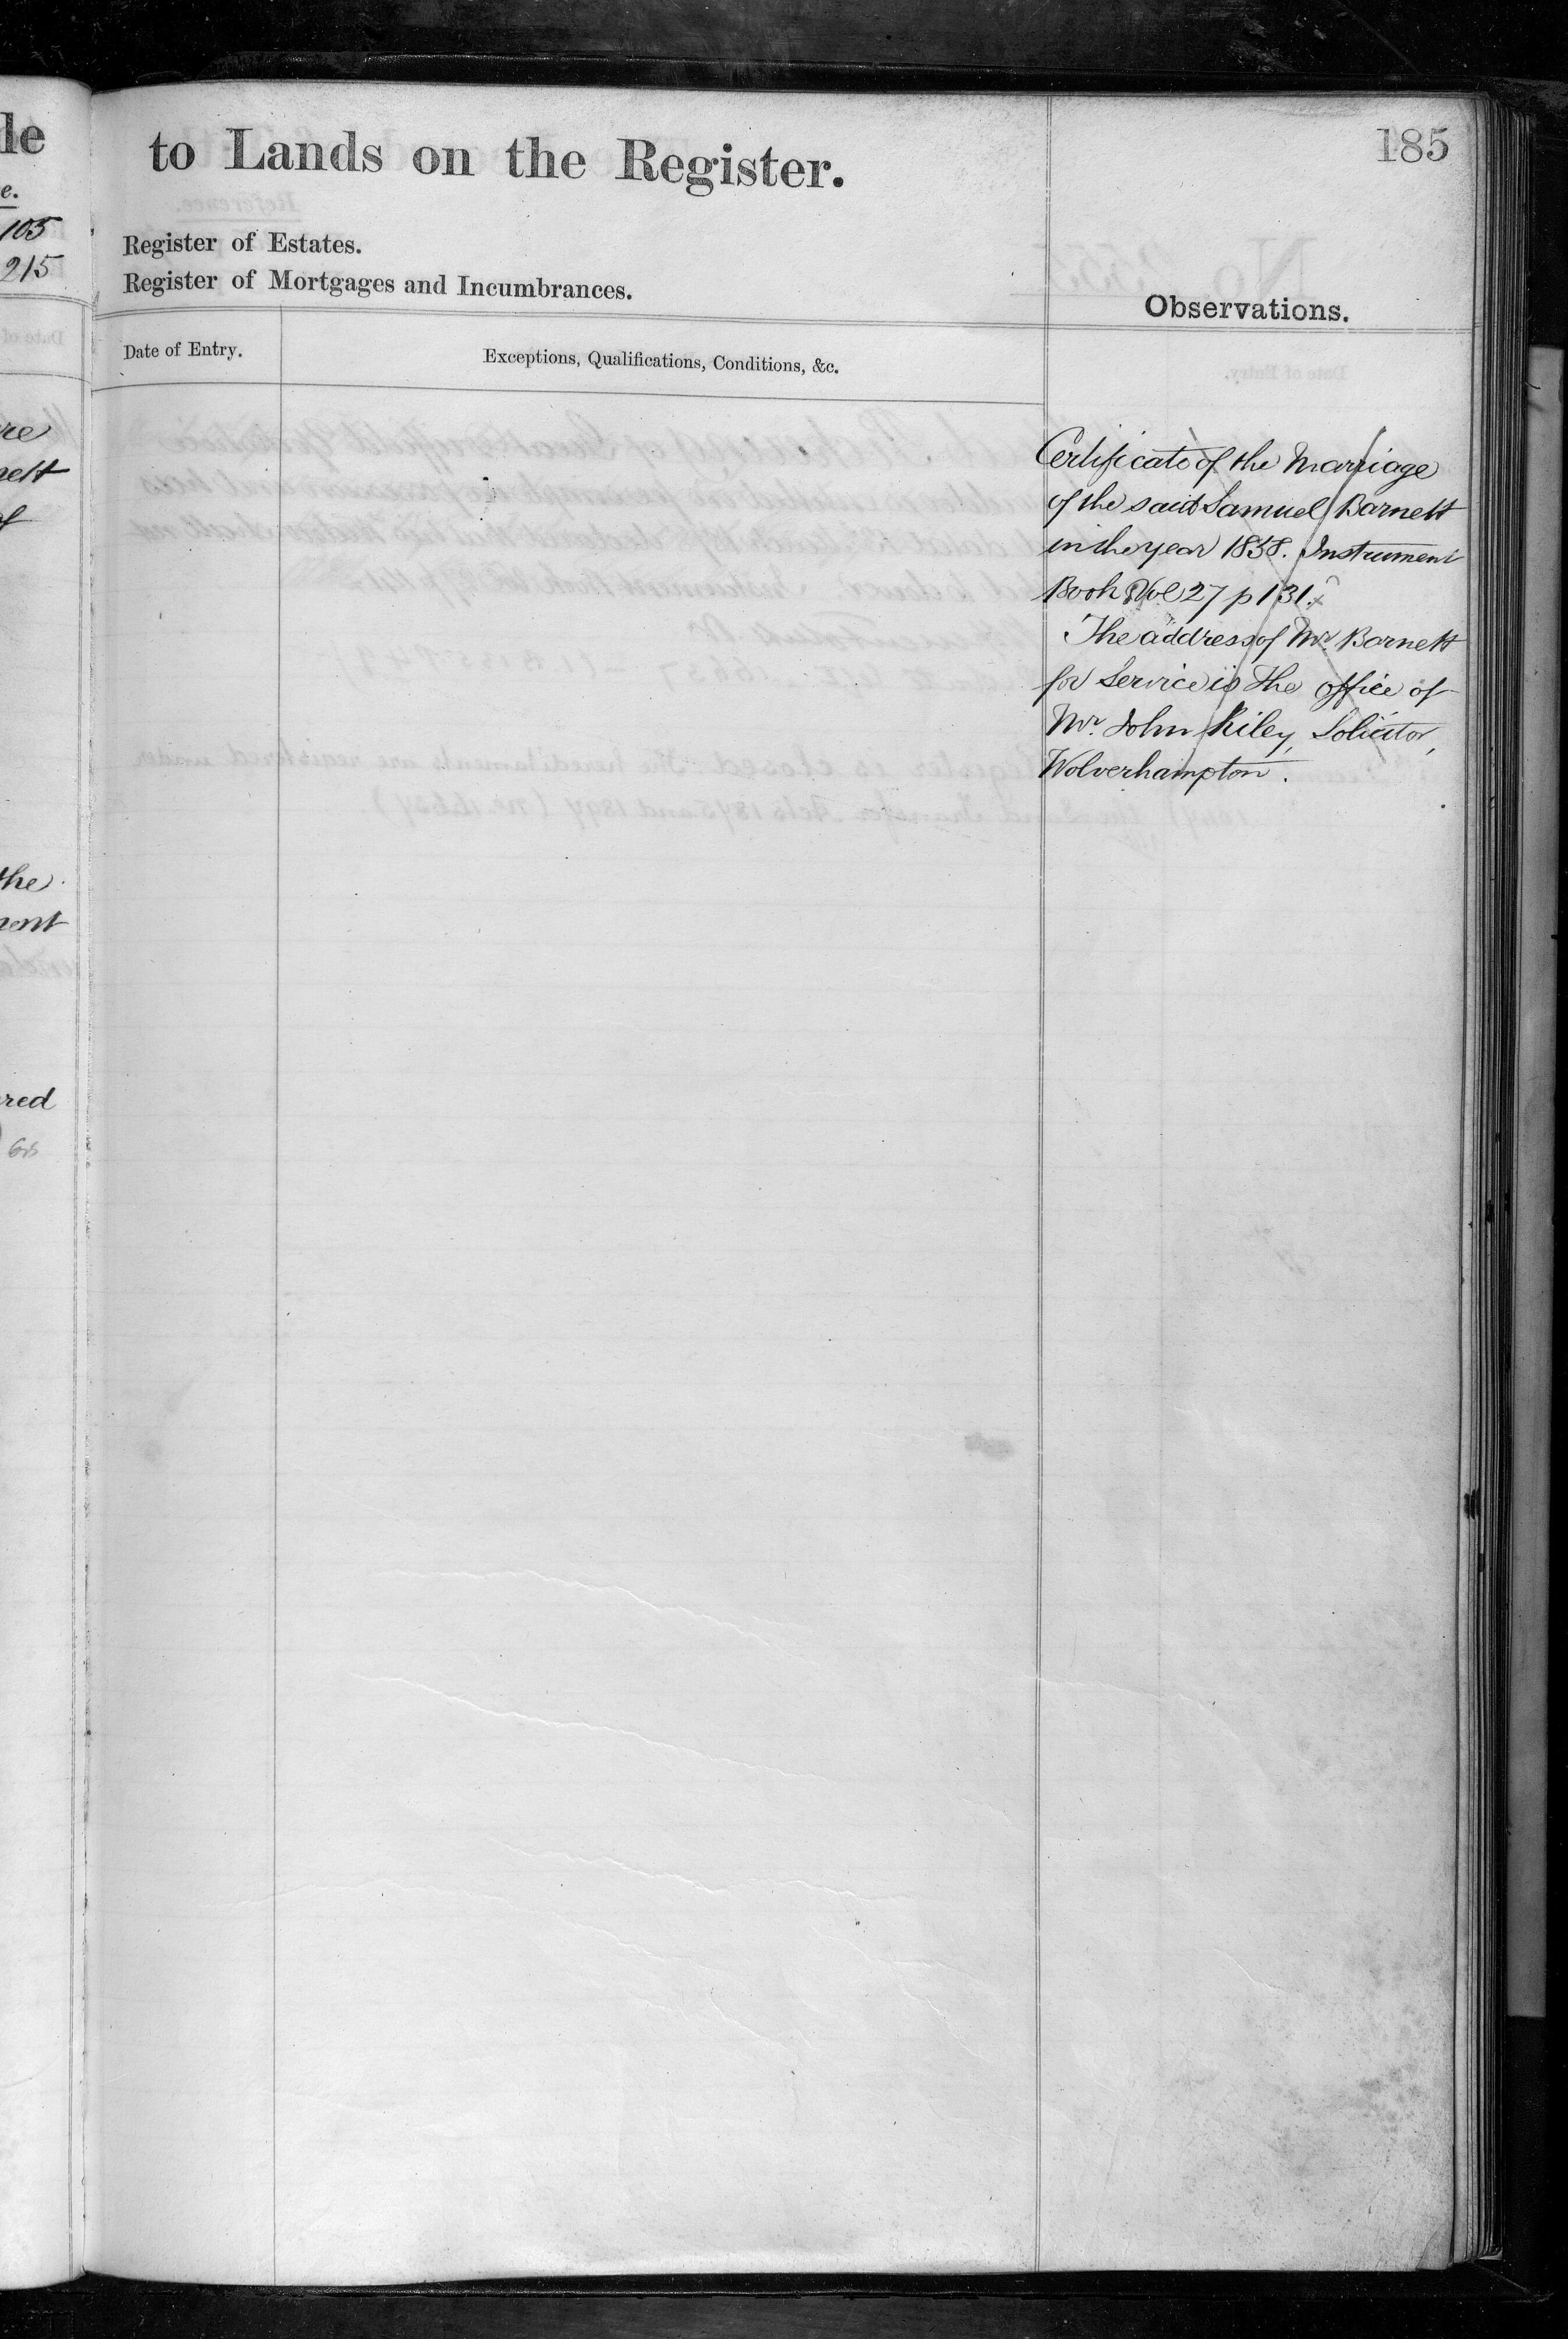 le
e.
105
215
re
nett
of
the
ment
red
to Lands on the Register.
185
Register of Estates.
Register of Mortgages and Incumbrances.
Observations.
Date of Entry.
Exceptions, Qualifications, Conditions, &c.
Certificate of the Marriage
of the said Samuel Barnett
in the year 1838. Instrument
Book Vol 27 p 131.
The address of Mr. Barnett
for Service is the office of
Mr. John Riley, Solicitor,
Wolverhampton.